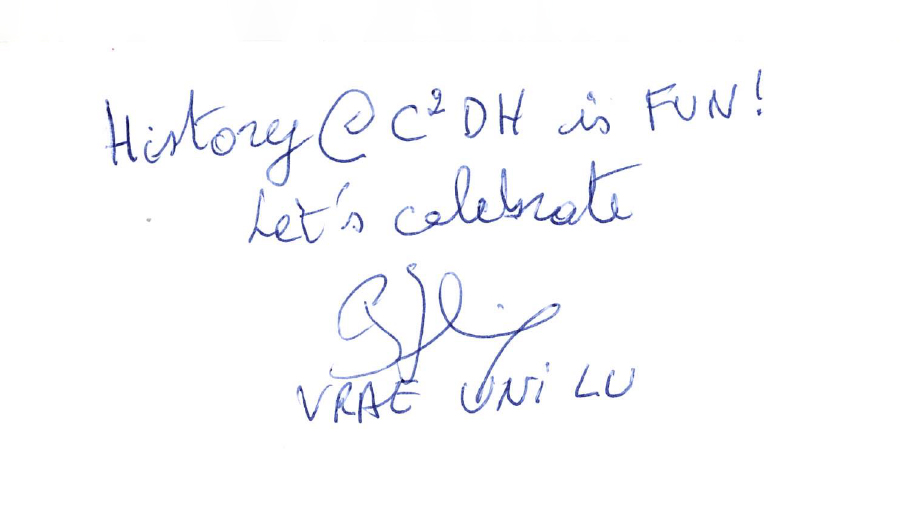 History @ C²DH is FUN!
Let's celebrate
VRAE UNI LU